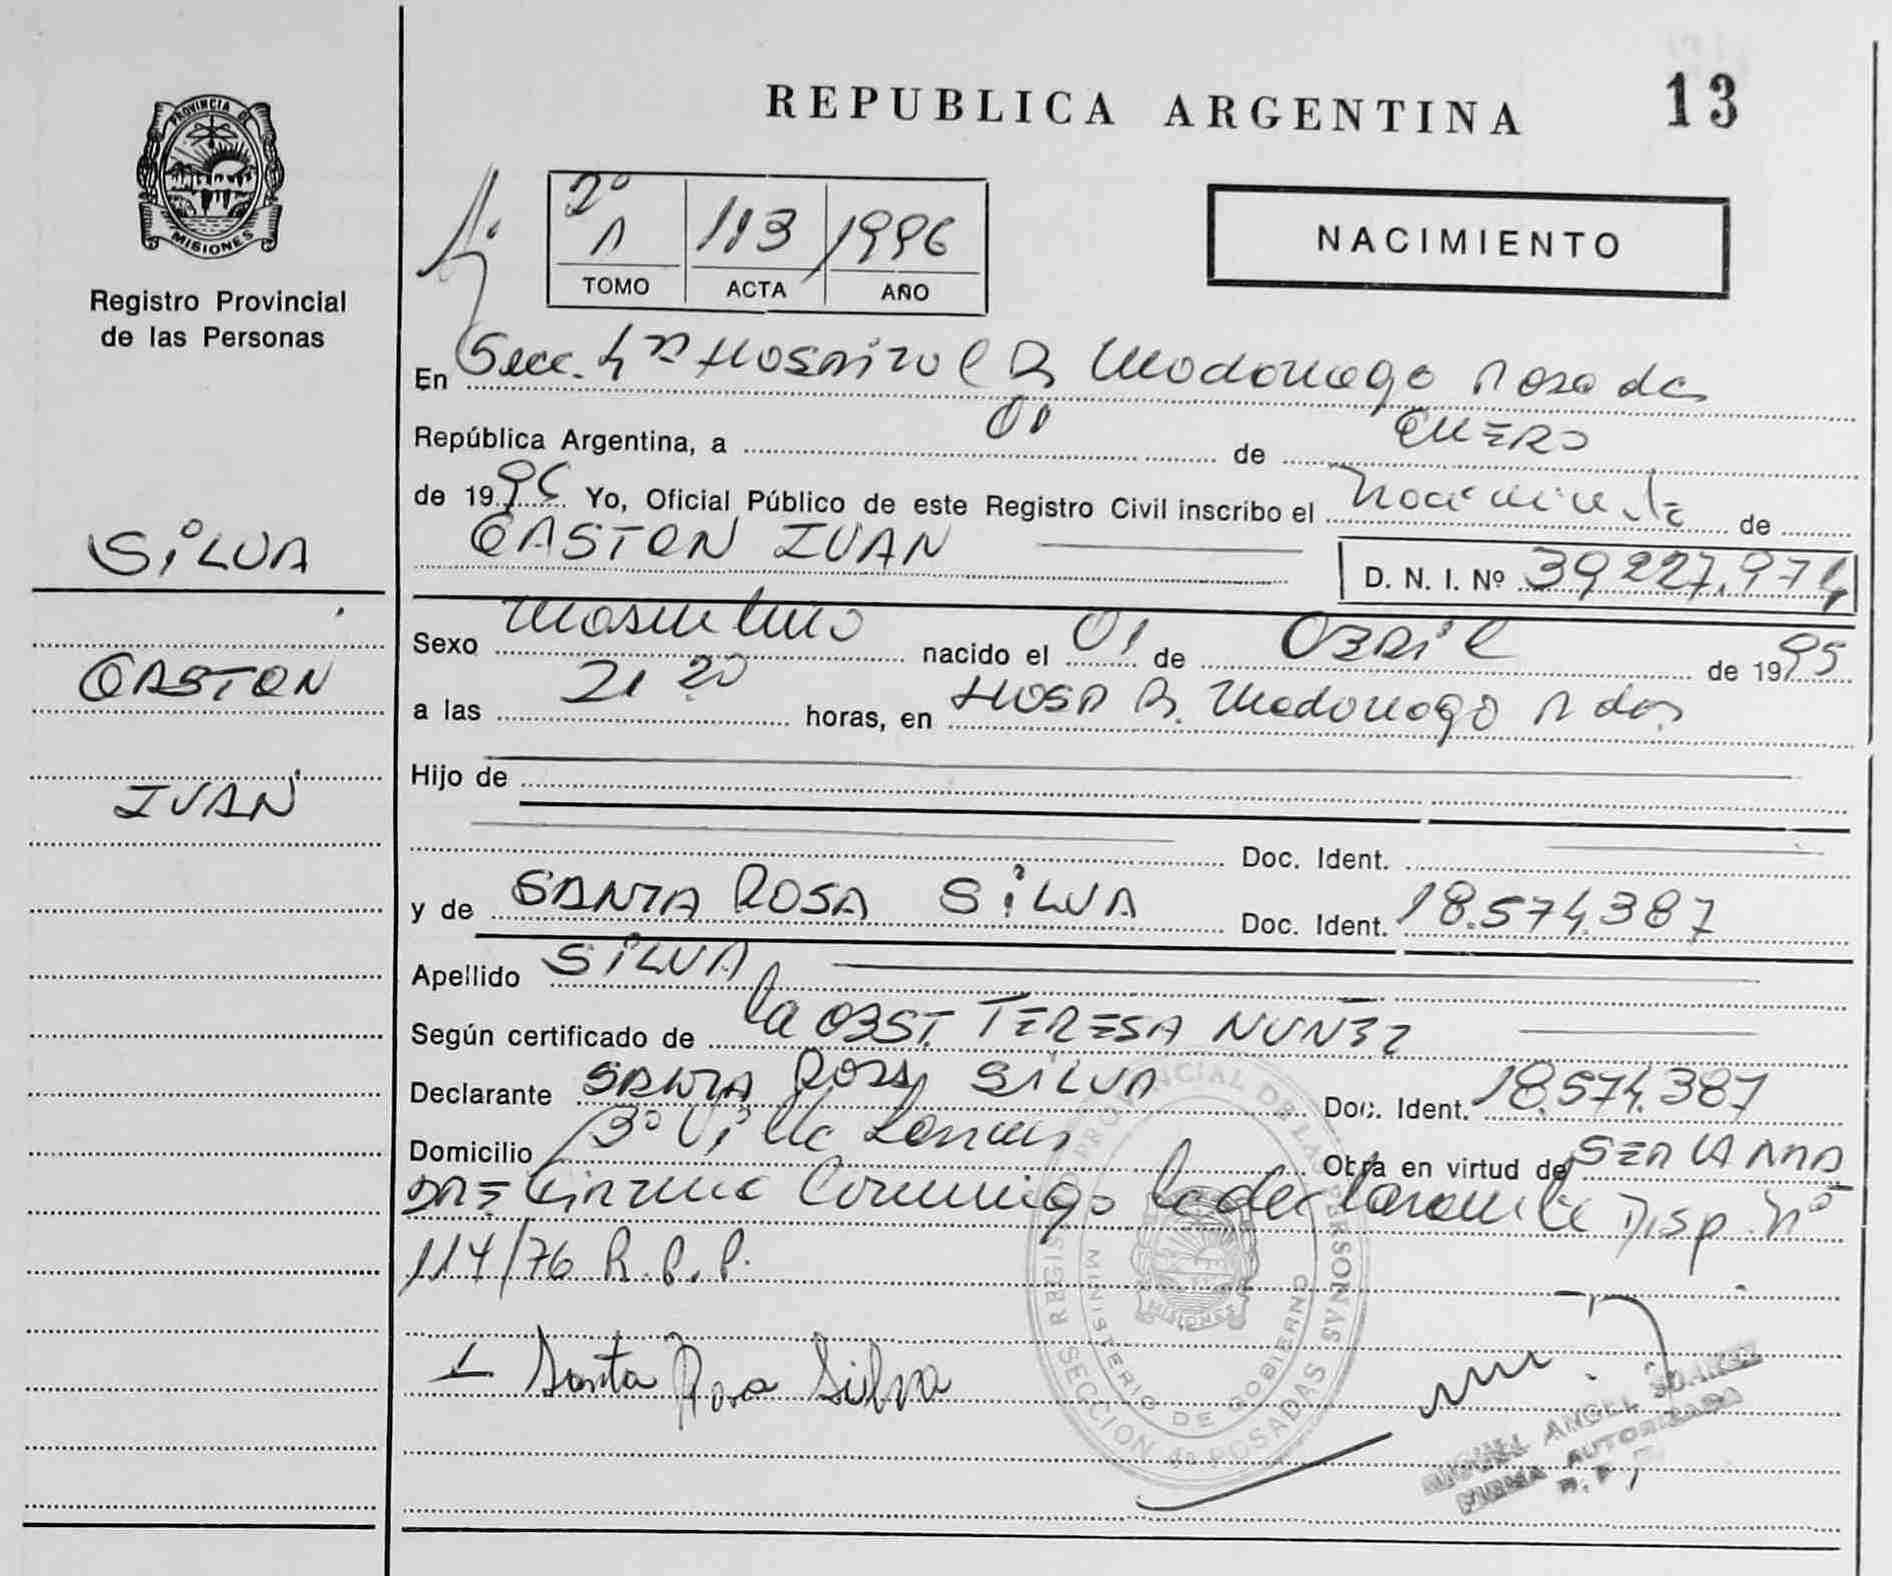 REPUBLICA ARGENTINA 13
PROVINCIA DE
MISIONES
Registro Provincial
de las Personas
2º
A 113 1996
TOMO ACTA AÑO
NACIMIENTO
En Secc. 4ª Hospital R. Madariaga Posadas
República Argentina, a de ENERO
de 1996 Yo, Oficial Público de este Registro Civil inscribo el nacimiento de
GASTON IVAN D. N. I. Nº 39.227.974
SILVA
GASTON
IVAN
Sexo masculino nacido el 01 de ABRIL de 1995
a las 21 20 horas, en HOSP R. Madariaga Pdas
Hijo de
Doc. Ident.
y de SANTA ROSA SILVA Doc. Ident. 18.574.387
Apellido SILVA
Según certificado de la OBST. TERESA NUÑEZ
Declarante SANTA ROSA SILVA Doc. Ident. 18.574.387
Domicilio Bº Villa Otra en virtud de SER LA MA
DRE Firma Conmigo la declarante Disp. Nº
114/76 R.P.P.
Santa Rosa Silva
REGISTRO PROVINCIAL DE LAS PERSONAS
MINISTERIO DE GOBIERNO
MISIONES
SECCION 4a POSADAS
MIGUEL ANGEL SUAREZ
FIRMA AUTORIZADA
R. P.